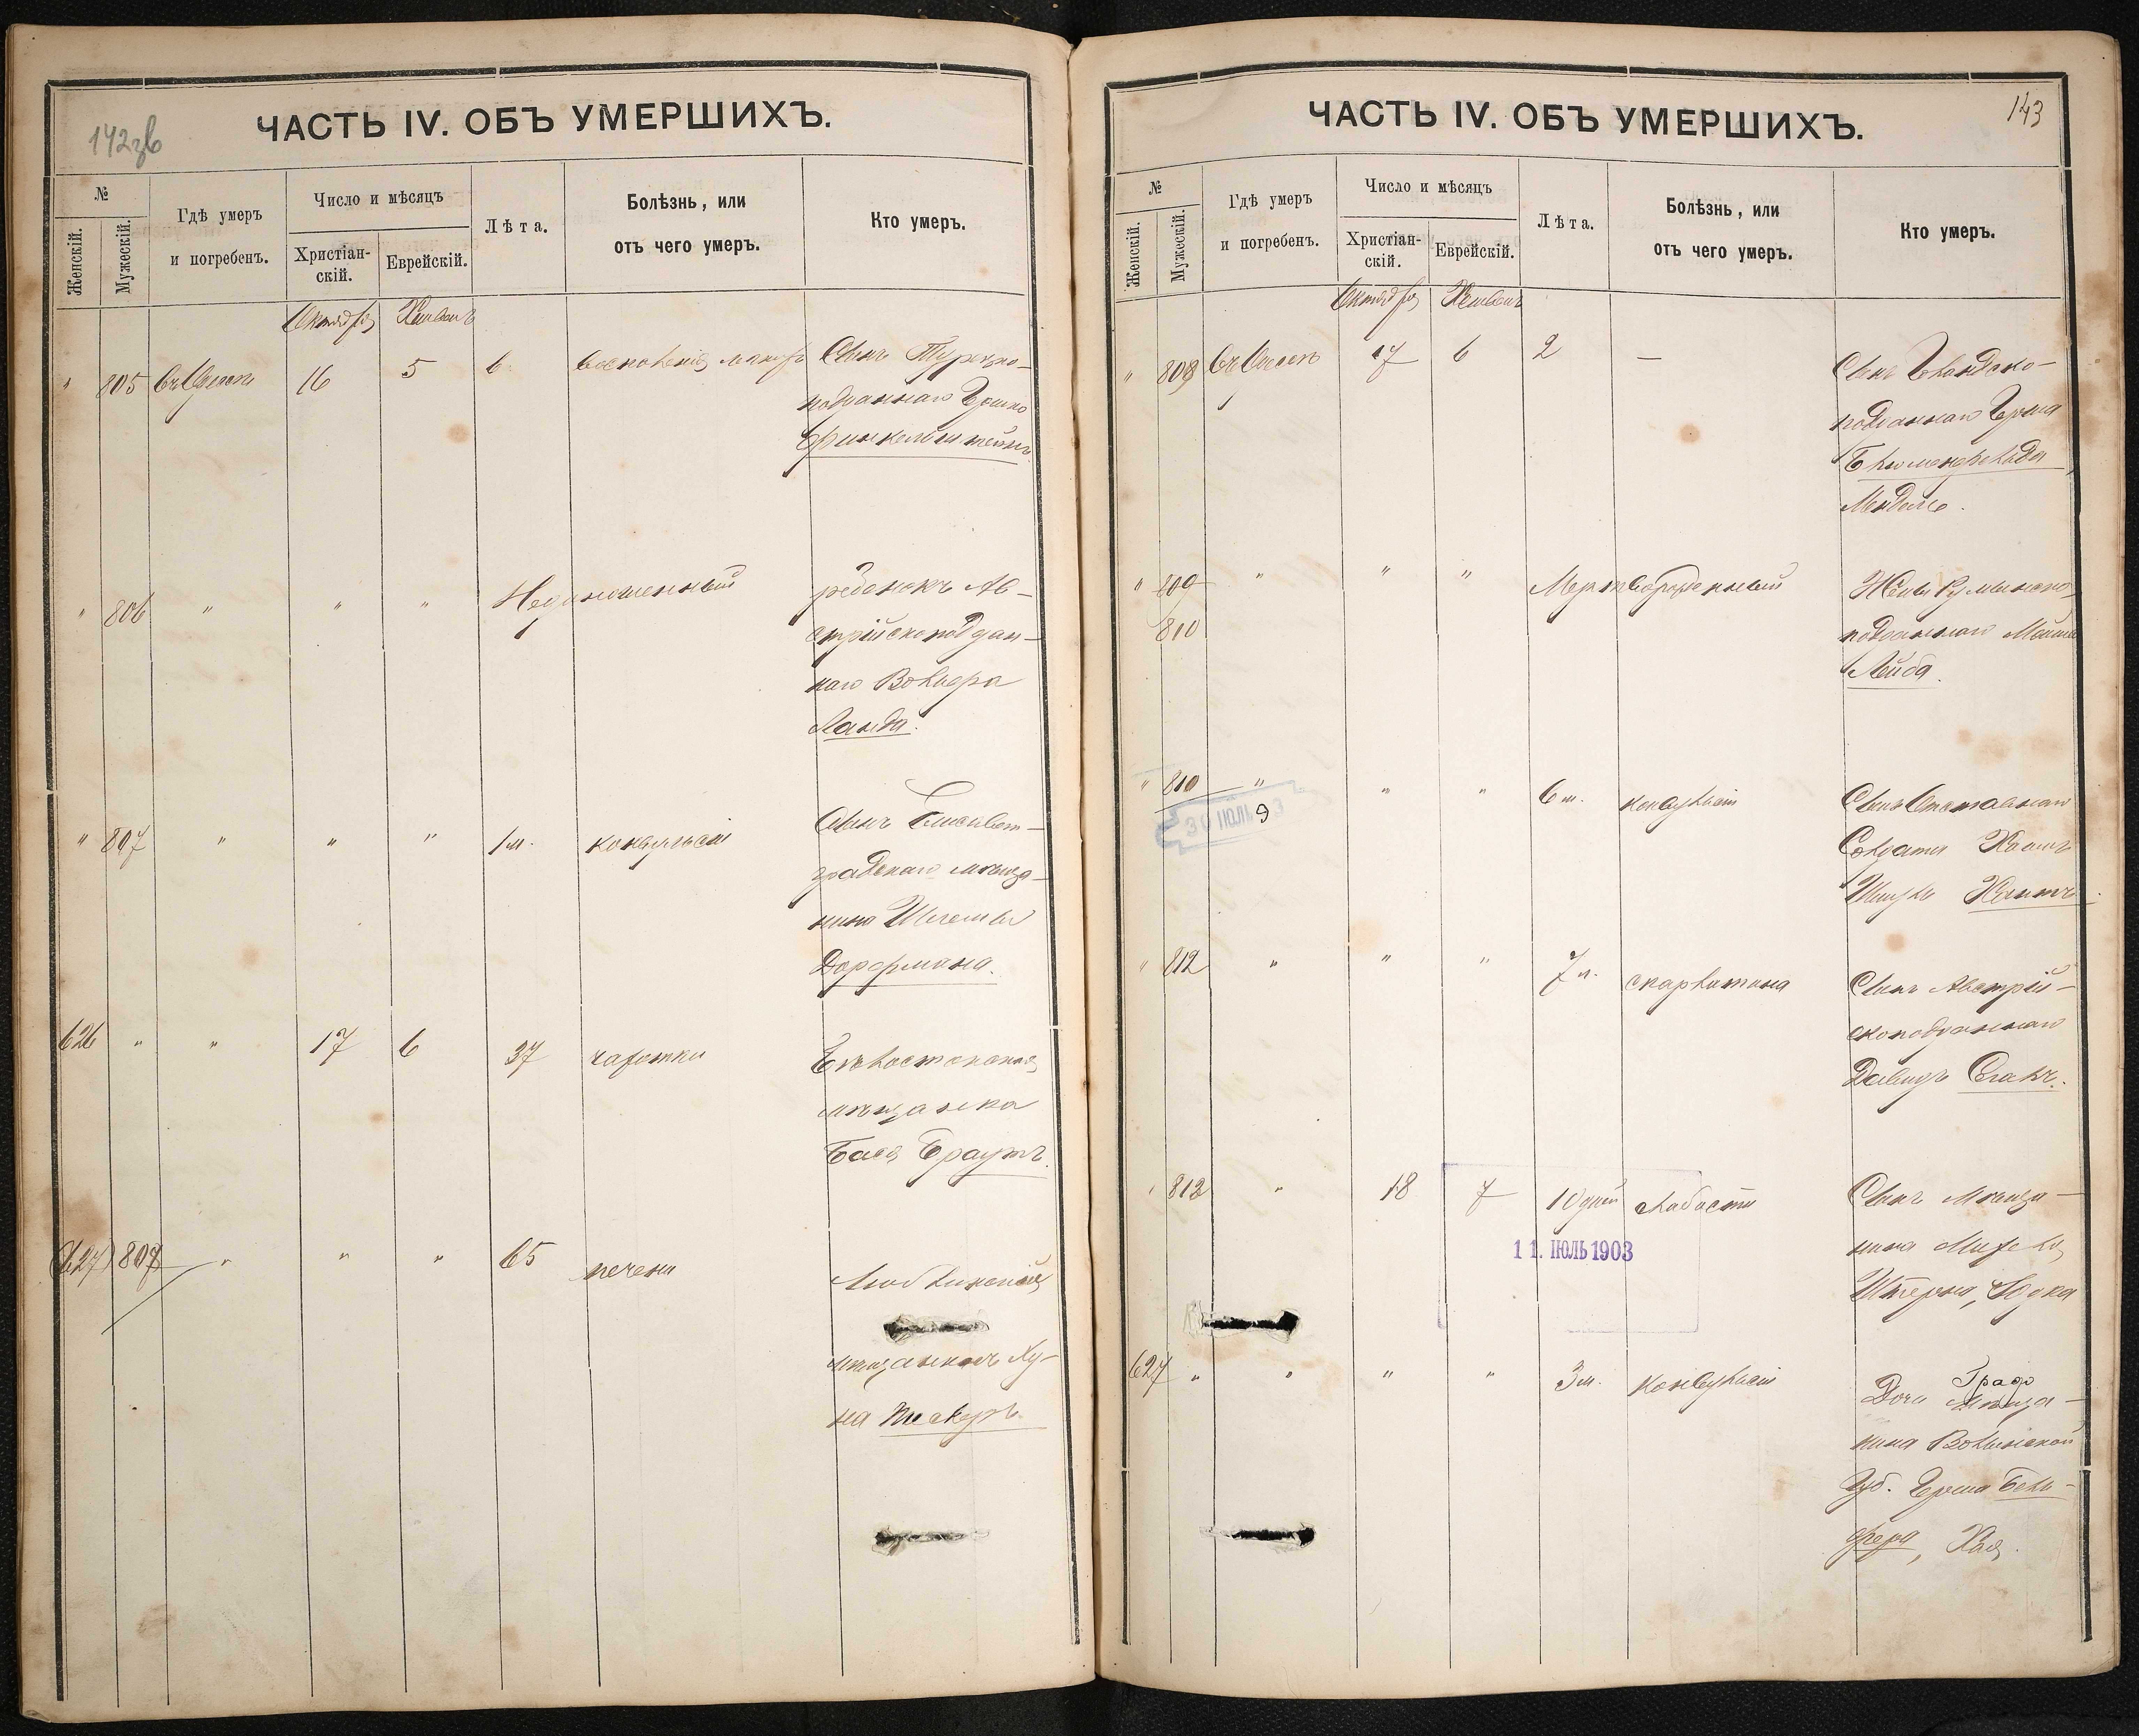 142зв
ЧАСТЬ IV. ОБЪ УМЕРШИХЪ.
№
Женскій.
Мужескій.
Гдѣ умеръ
и погребенъ.
Число и мѣсяцъ
Христіан-
скій.
Еврейскій.
Лѣта.
Болѣзнь, или
отъ чего умеръ.
Кто умеръ.
Октября Хешванъ
" 805 въ Одессѣ 16 5 6 воспаленія Сынъ Турецко-
подданнаго Гершко
Финкельштейнъ
" 806 " " " Недоношенный ребенокъ Ав-
стрійскоподдан-
наго Вольера
Ланда.
" 807 " " " 1 м. конвульсіи Сынъ Елисавет-
градскаго мѣща-
нина Шлемы
Дорфмана.
626 " " 17 6 37 чахотки Бѣлостокская
мѣщанка
Бася Браунъ.
627 807 " " " 65 печени Люблинскій
мѣщанинъ Ху-
на
143
ЧАСТЬ IV. ОБЪ УМЕРШИХЪ.
№
Женскій.
Мужескій.
Гдѣ умеръ
и погребенъ.
Число и мѣсяцъ
Христіан-
скій.
Еврейскій.
Лѣта.
Болѣзнь, или
отъ чего умеръ.
Кто умеръ.
Октября Хешванъ
" 808 въ Одессѣ 17 6 2 — Сынъ Голландско-
подданнаго Герша
Блюменфельда
Мендель.
" 809 " " " Мертворожденный Жены Румынско-
810 подданнаго
Лейба.
" 810 " " " 6 м. конвульсіи Сынъ Отставнаго
30 ИЮЛЬ 9 Солдата Хаимъ
Хаитъ.
" 812 " " " 7 л. скарлатина Сынъ Австрій-
скоподданнаго
Давидъ
" 812 " 18 7 10 дней слабости Сынъ Мѣща-
нина
Штерна, Юдка
11. ІЮЛЬ 1903
627 " " " " 3 м. конвульсіи Дочь Мѣща-
нина Волынской
Губ. Герша Бель-
фера, Хая.